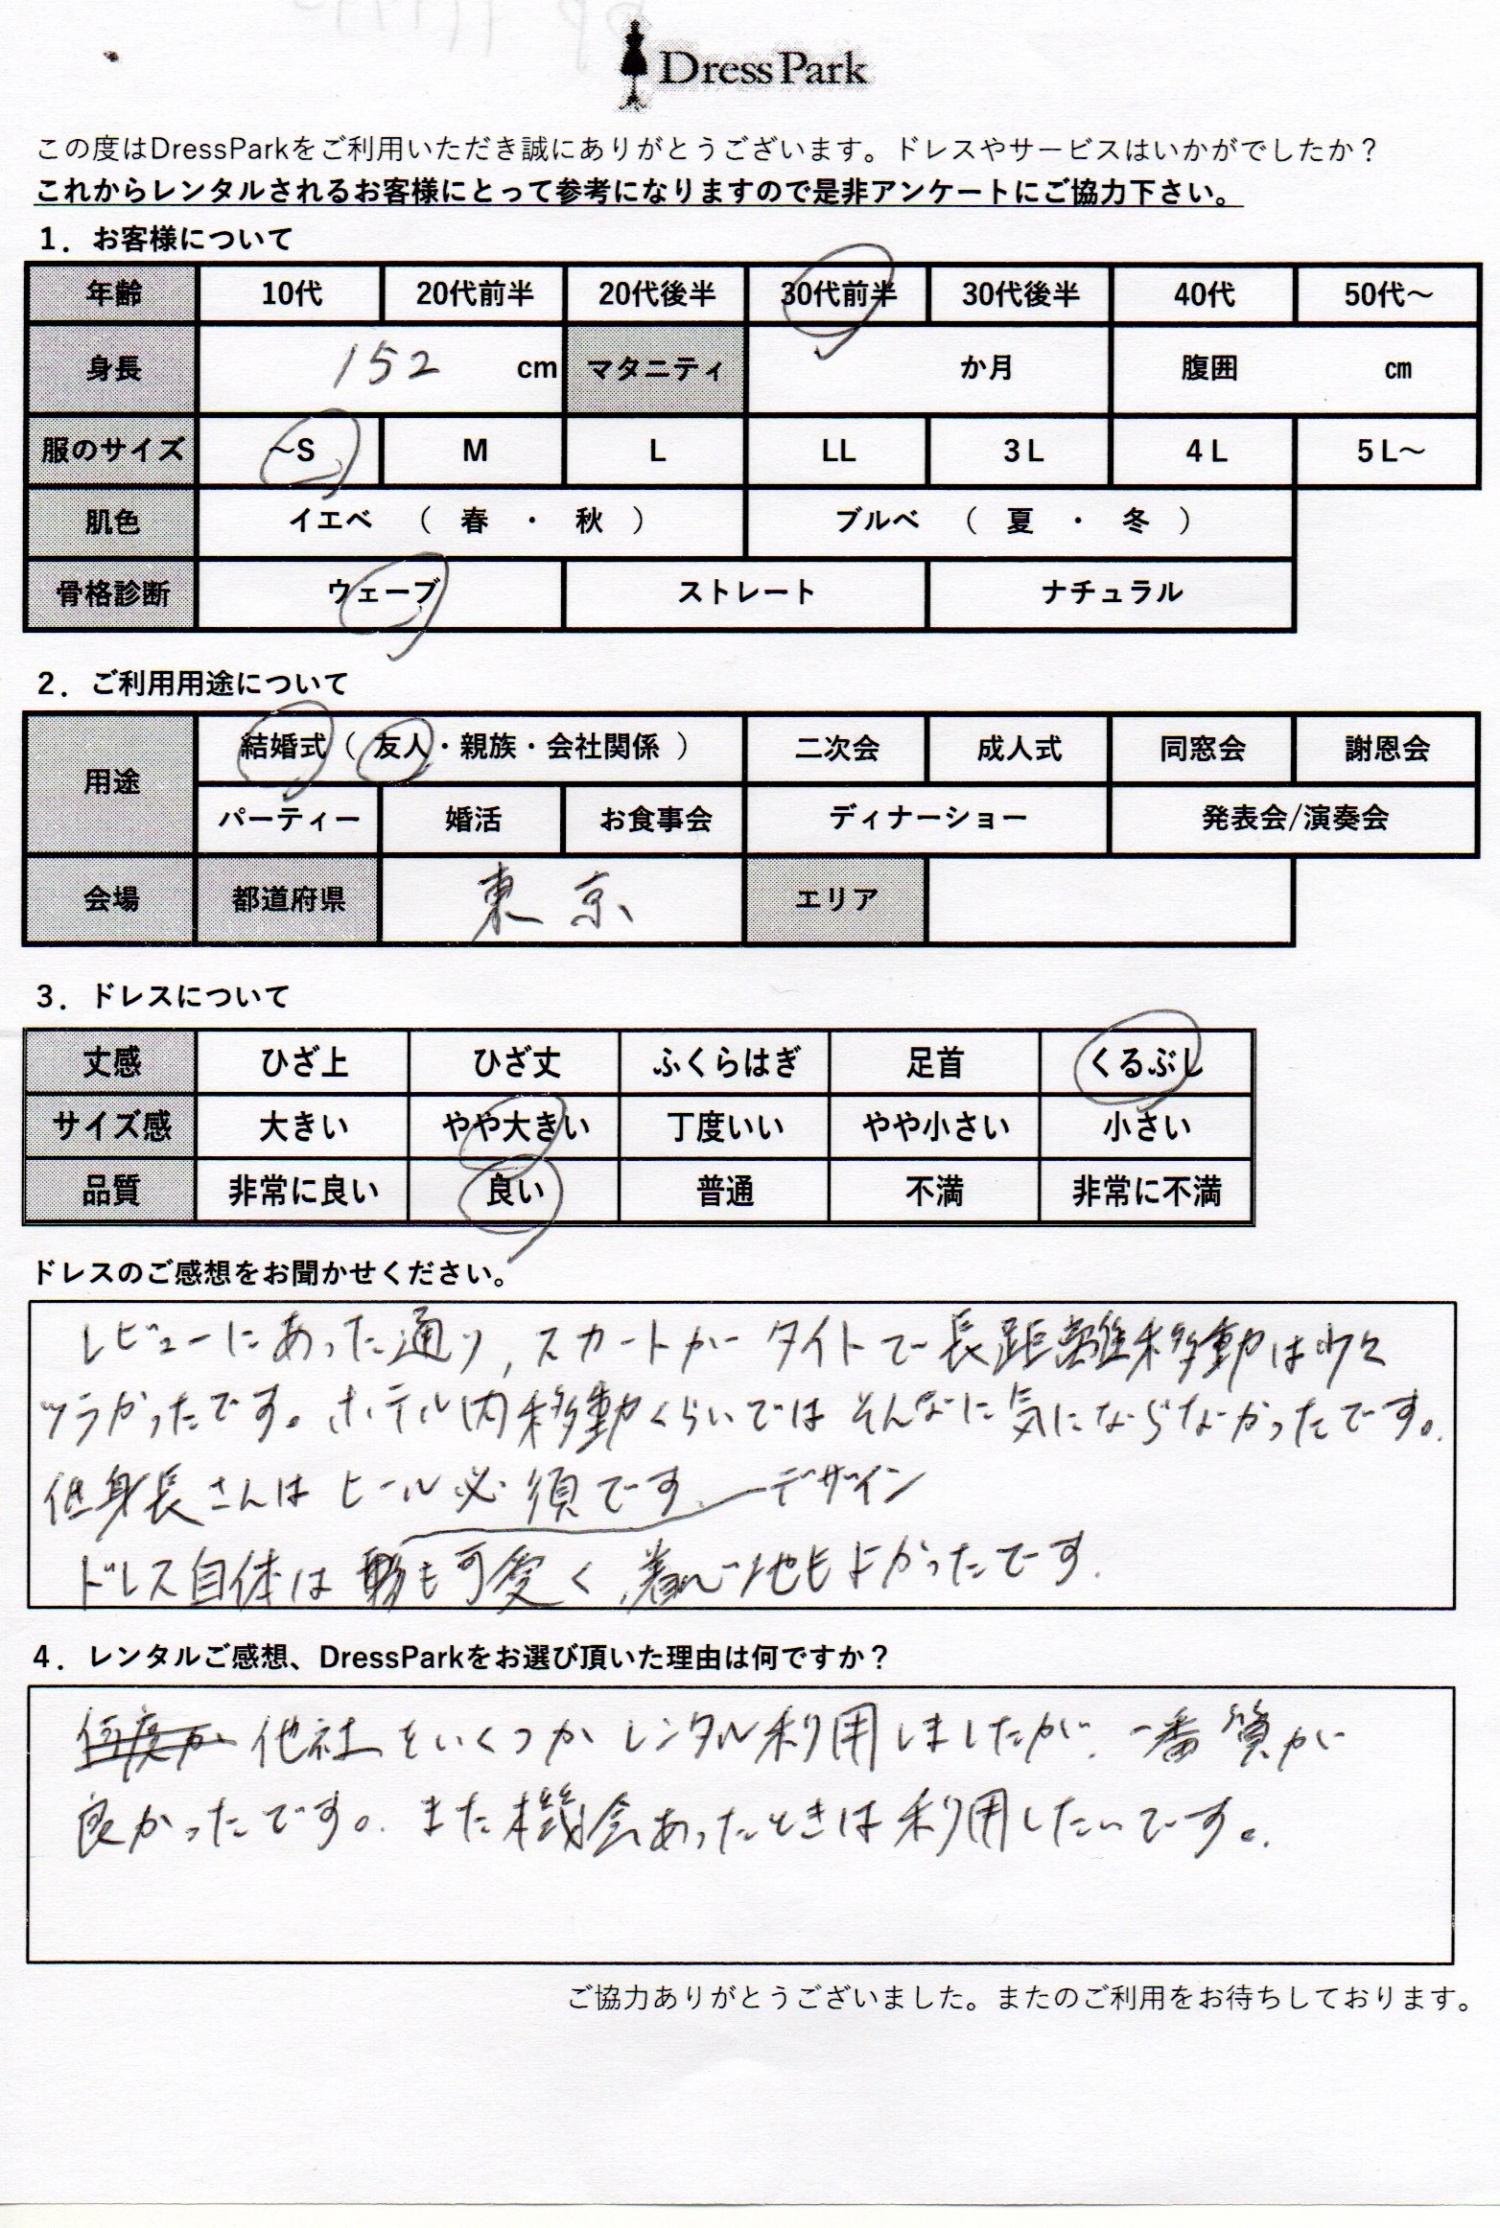 DressPark
この度はDressParkをご利用いただき誠にありがとうございます。ドレスやサービスはいかがでしたか？
これからレンタルされるお客様にとって参考になりますので是非アンケートにご協力下さい。
1．お客様について
年齢 10代 20代前半 20代後半 30代前半 30代後半 40代 50代～
身長 152 cm マタニティ か月 腹囲 ㎝
服のサイズ ～S M L LL 3L 4L 5L～
肌色 イエベ （ 春 ・ 秋 ） ブルベ （ 夏 ・ 冬 ）
骨格診断 ウェーブ ストレート ナチュラル
2．ご利用用途について
用途 結婚式（ 友人・親族・会社関係 ） 二次会 成人式 同窓会 謝恩会
パーティー 婚活 お食事会 ディナーショー 発表会/演奏会
会場 都道府県 東京 エリア
3．ドレスについて
丈感 ひざ上 ひざ丈 ふくらはぎ 足首 くるぶし
サイズ感 大きい やや大きい 丁度いい やや小さい 小さい
品質 非常に良い 良い 普通 不満 非常に不満
ドレスのご感想をお聞かせください。
レビューにあった通り，スカートがタイトで長距離移動は少々
ツラかったです。ホテル内移動くらいではそんなに気にならなかったです。
低身長さんはヒール必須です。 デザイン
ドレス自体は も可愛く、着心地もよかったです.
4．レンタルご感想、DressParkをお選び頂いた理由は何ですか？
他社をいくつかレンタル利用しましたが、一番質が
良かったです。また機会あったときは利用したいです。
ご協力ありがとうございました。またのご利用をお待ちしております。